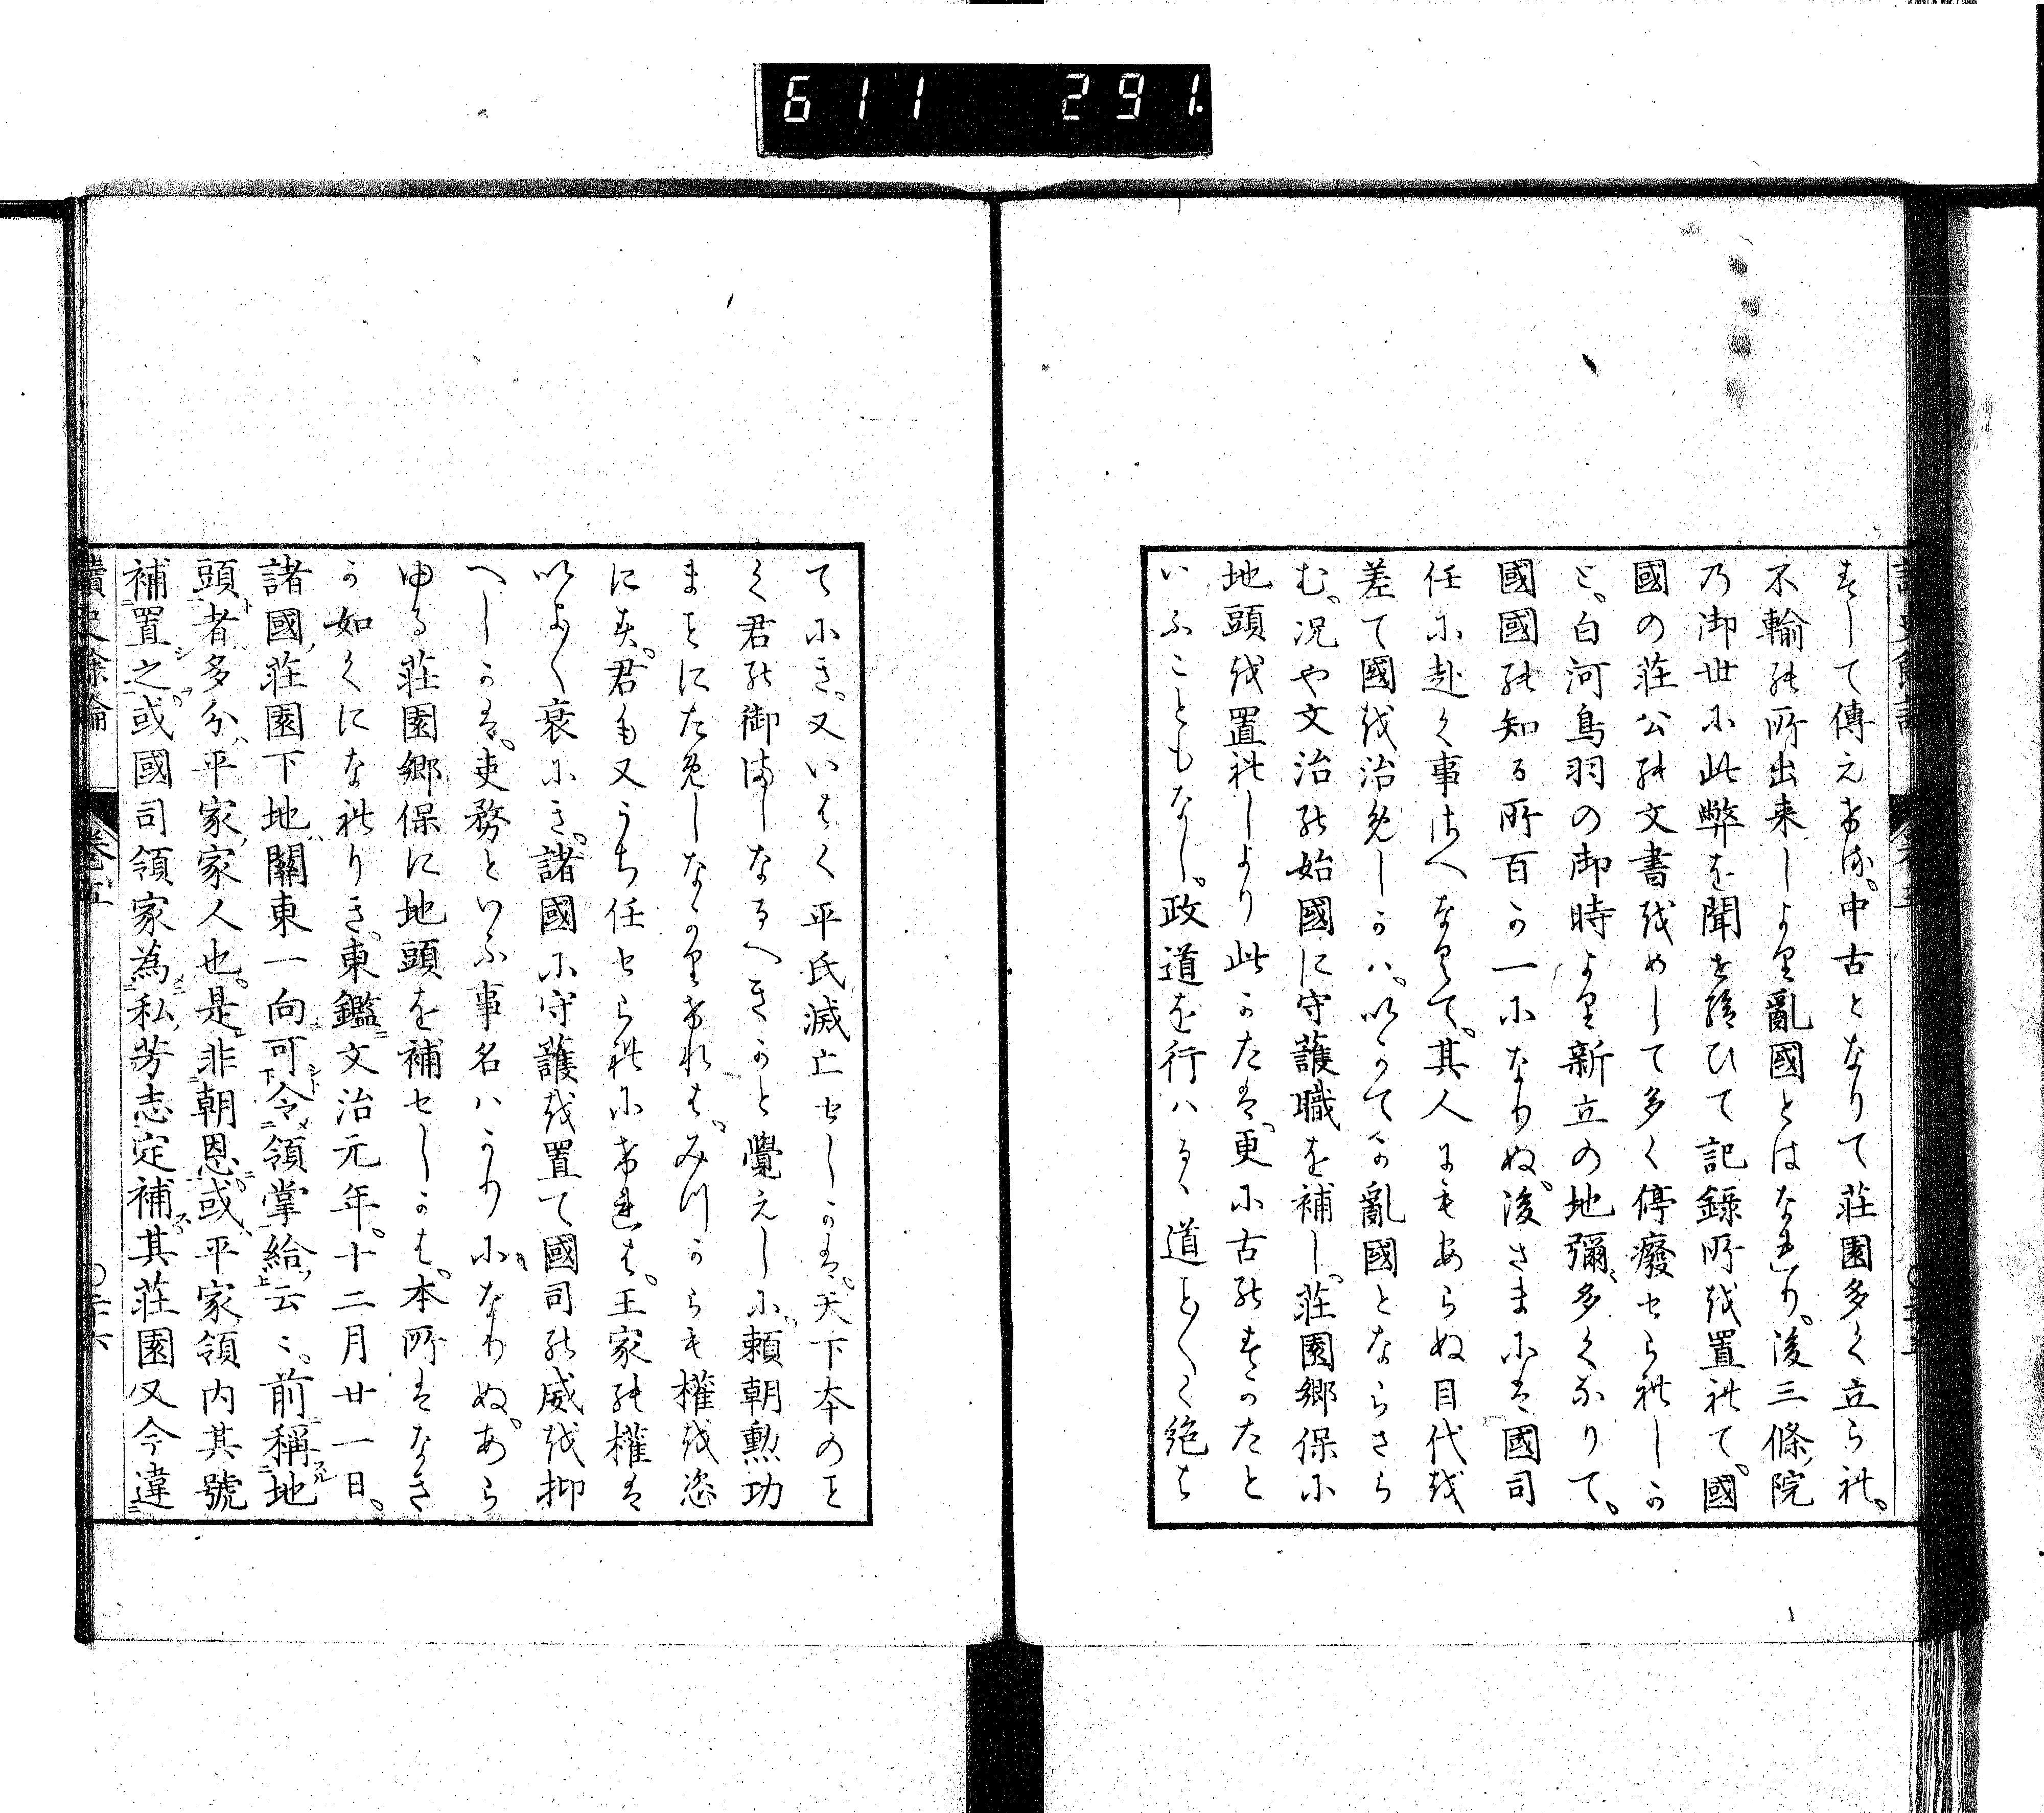 6 1 1 2 9 1.
讀史餘論 卷五
おして傳えけり。中古となりて荘園多く立られ。
不輸の所出来しより亂國とはなれり。後三條院
乃御世に此弊を聞き給ひて記録所を置れて。國
國の荘公の文書をめして多く停癈せられしか
ど。白河鳥羽の御時より新立の地彌多くなりて。
國國の知る所百か一になりぬ。後さまには國司
任に赴く事さへなくて。其人にもあらぬ目代を
差て國を治めしかハ。いかてか亂國とならさら
む。况や文治の始國に守護職を補し。荘園郷保に
地頭を置れしより此かたは。更に古のすかたと
いふこともなし。政道を行ハるゝ道ことことく絶は
てにき。又いはく平氏滅亡せしかは。天下本のこと
く君の御まゝなるへきかと覺えしに。頼朝勲功
まことにためしなかりけれは。みつからも權を恣
にす。君も又うち任せられにけれは。王家の權は
いよいよ衰にき。諸國に守護を置て國司の威を抑
へしかは。吏務といふ事名ハかりになりぬ。あら
ゆる荘園郷保に地頭を補せしかは。本所はなき
か如くになれりき。東鑑文治元年。十二月廿一日。
諸國荘園下地關東一向可令領掌給云云。前稱地
頭者多分平家家人也。是非朝恩。或平家領内其號
補置之。或國司領家為私芳志定補其荘園又令違
讀史餘論 卷五 〇二十六